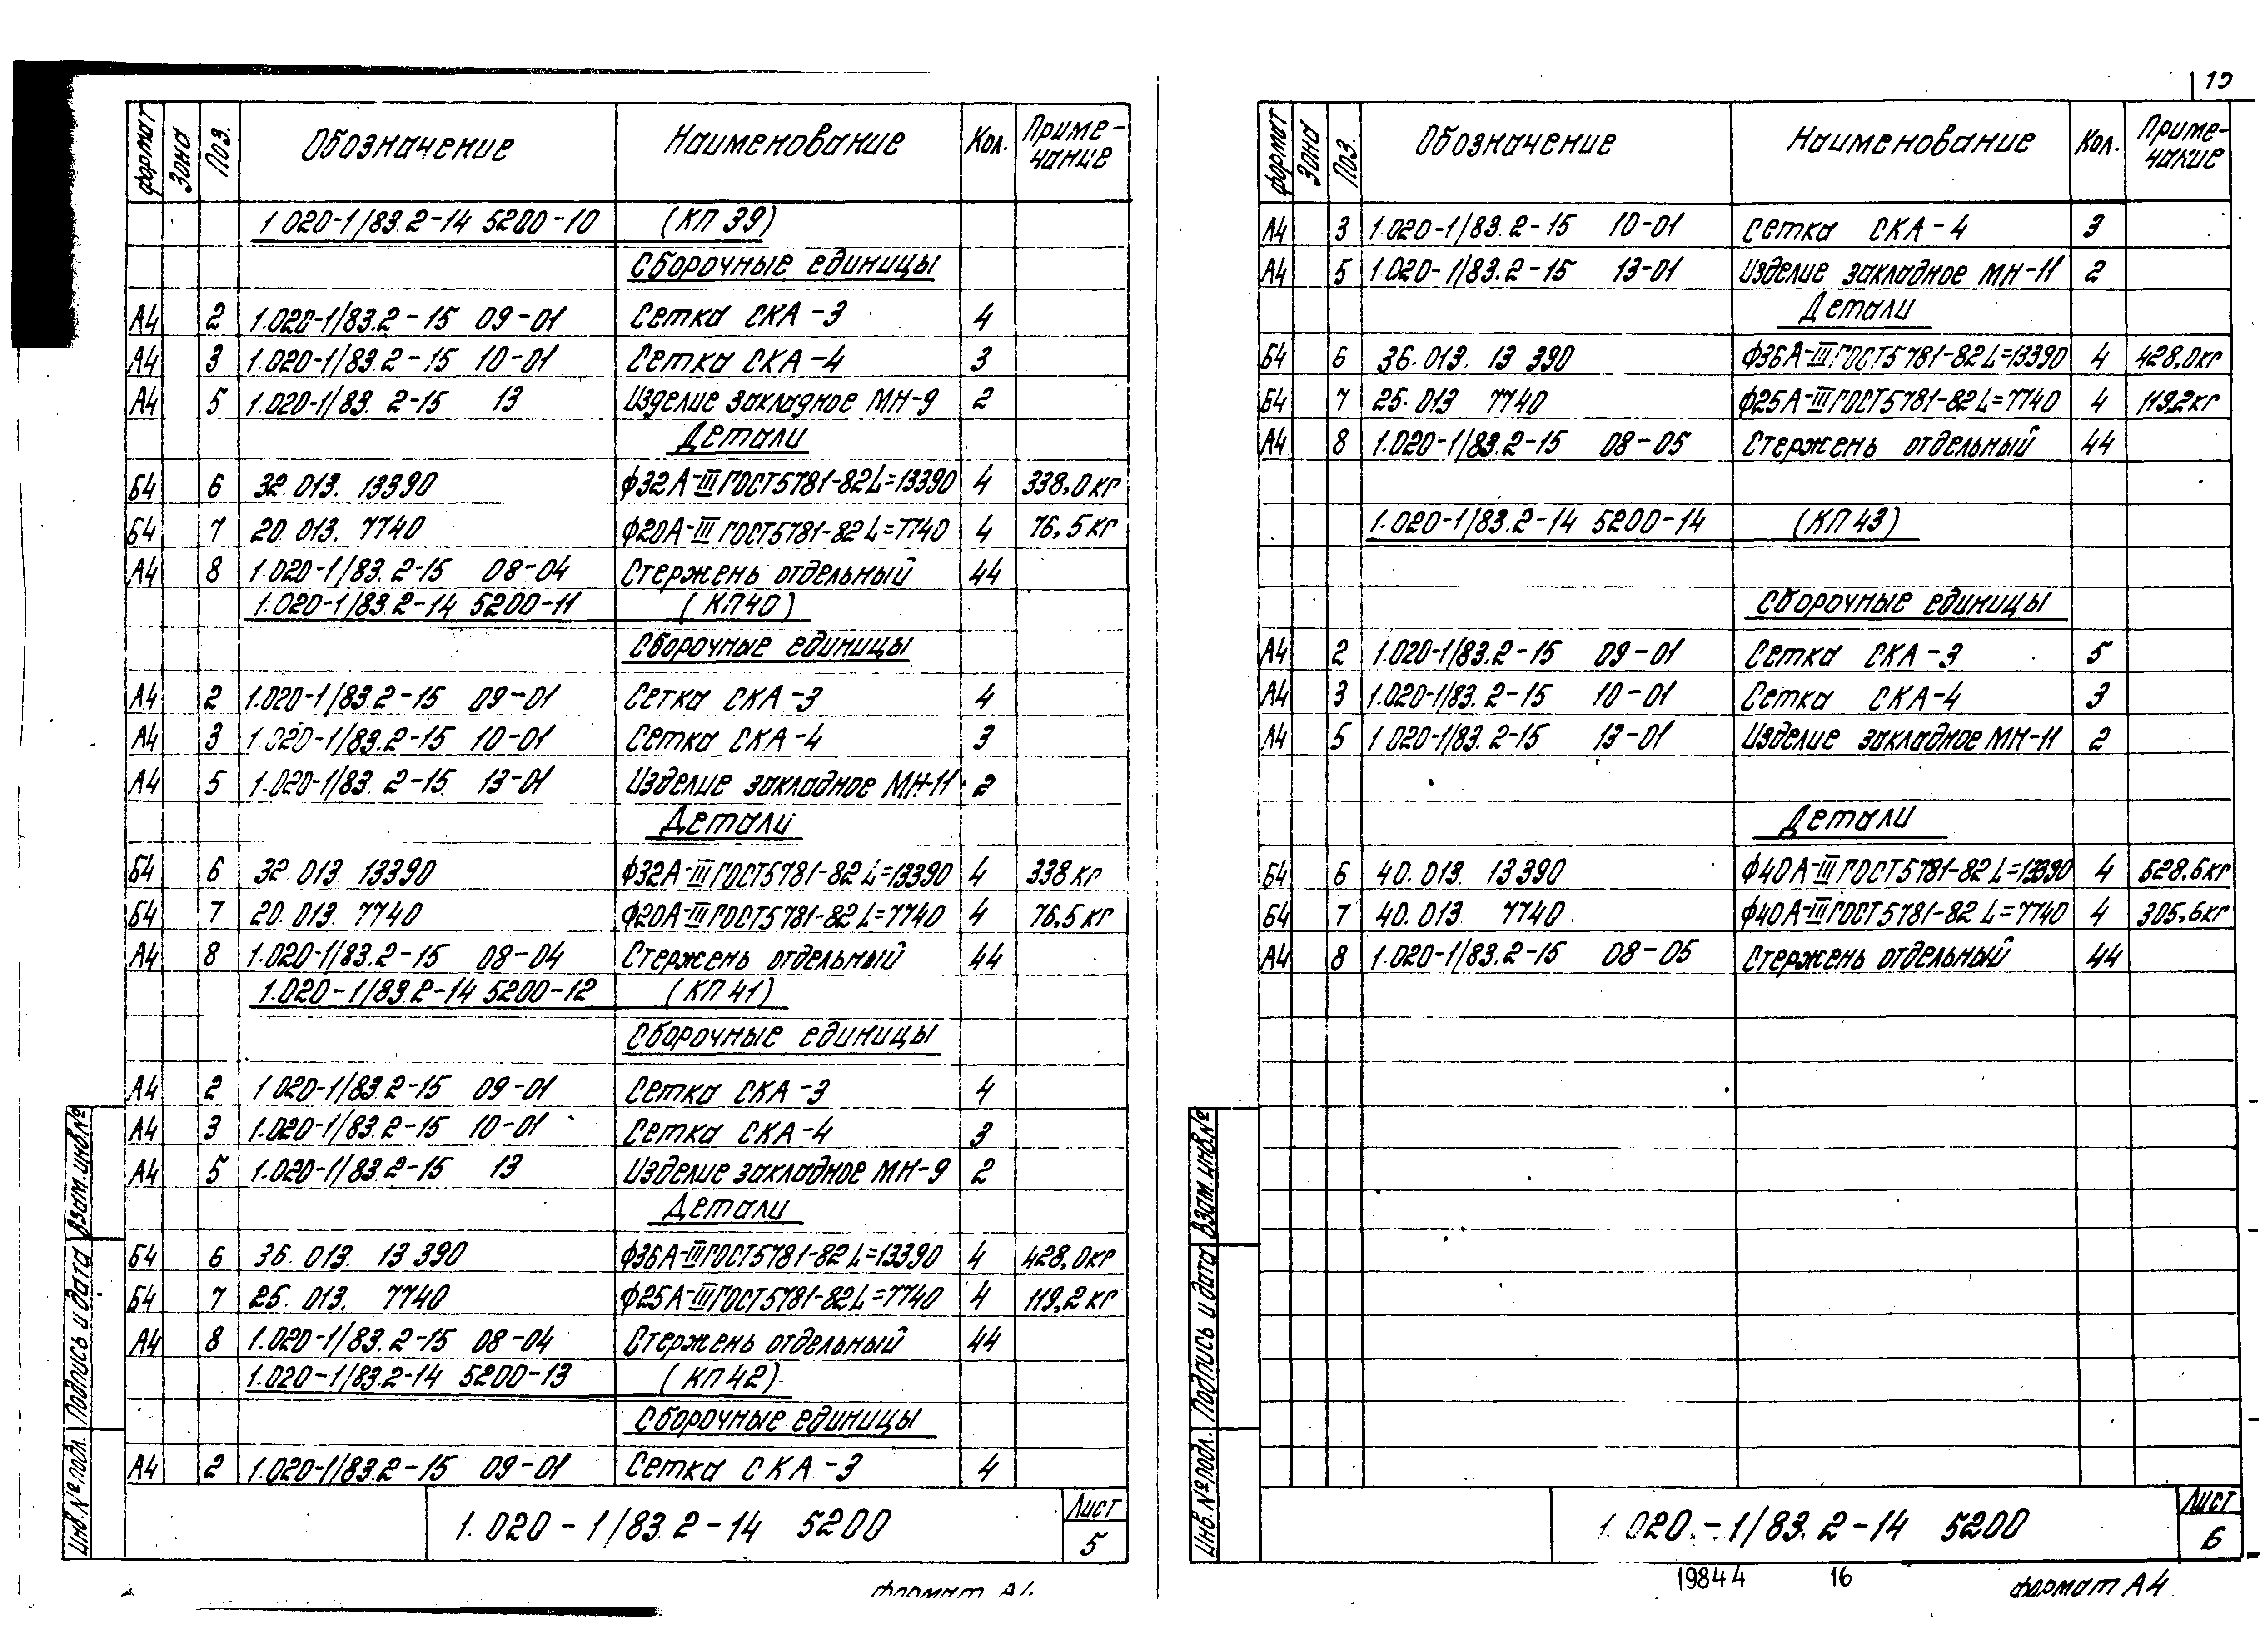 формат Зона Поз. Обозначение Наименование Кол. Приме-
чание
1.020-1/83.2-14 5200-10 (КП 39)
Сборочные единицы
А4 2 1.020-1/83.2-15 09-01 Сетка СКА-3 4
А4 3 1.020-1/83.2-15 10-01 Сетка СКА-4 3
А4 5 1.020-1/83.2-15 13 Изделие закладное МН-9 2
Детали
Б4 6 32.013.13390 ф32А-III ГОСТ5781-82 L=13390 4 338,0кг
Б4 7 20.013.7740 ф20А-III ГОСТ5781-82 L=7740 4 76,5кг
А4 8 1.020-1/83.2-15 08-04 Стержень отдельный 44
1.020-1/83.2-14 5200-11 (КП40)
Сборочные единицы
А4 2 1.020-1/83.2-15 09-01 Сетка СКА-3 4
А4 3 1.020-1/83.2-15 10-01 Сетка СКА-4 3
А4 5 1.020-1/83.2-15 13-01 Изделие закладное МН-11 2
Детали
Б4 6 32.013.13390 ф32А-III ГОСТ5781-82 L=13390 4 338кг
Б4 7 20.013.7740 ф20А-III ГОСТ5781-82 L=7740 4 76,5кг
А4 8 1.020-1/83.2-15 08-04 Стержень отдельный 44
1.020-1/83.2-14 5200-12 (КП 41)
Сборочные единицы
А4 2 1.020-1/83.2-15 09-01 Сетка СКА-3 4
А4 3 1.020-1/83.2-15 10-01 Сетка СКА-4 3
А4 5 1.020-1/83.2-15 13 Изделие закладное МН-9 2
Детали
Б4 6 36.013.13390 ф36А-III ГОСТ5781-82 L=13390 4 428,0кг
Б4 7 25.013.7740 ф25А-III ГОСТ5781-82 L=7740 4 119,2кг
А4 8 1.020-1/83.2-15 08-04 Стержень отдельный 44
1.020-1/83.2-14 5200-13 (КП 42)
Сборочные единицы
А4 2 1.020-1/83.2-15 09-01 Сетка СКА-3 4
Инв.№подл. Подпись и дата Взам.инв.№
1.020-1/83.2-14 5200
Лист
5
формат
формат Зона Поз. Обозначение Наименование Кол. Приме-
чание
А4 3 1.020-1/83.2-15 10-01 Сетка СКА-4 3
А4 5 1.020-1/83.2-15 13-01 Изделие закладное МН-11 2
Детали
Б4 6 36.013.13390 ф36А-III ГОСТ5781-82 L=13390 4 428,0кг
Б4 7 25.013 7740 ф25А-III ГОСТ5781-82 L=7740 4 119,2кг
А4 8 1.020-1/83.2-15 08-05 Стержень отдельный 44
1.020-1/83.2-14 5200-14 (КП 43)
Сборочные единицы
А4 2 1.020-1/83.2-15 09-01 Сетка СКА-3 5
А4 3 1.020-1/83.2-15 10-01 Сетка СКА-4 3
А4 5 1.020-1/83.2-15 13-01 Изделие закладное МН-11 2
Детали
Б4 6 40.013.13390 ф40А-III ГОСТ5781-82 L=13390 4 528,6кг
Б4 7 40.013.7740 ф40А-III ГОСТ5781-82 L=7740 4 305,6кг
А4 8 1.020-1/83.2-15 08-05 Стержень отдельный 44
Инв.№подл. Подпись и дата Взам.инв.№
1.020-1/83.2-14 5200
Лист
6
19844 16
формат А4